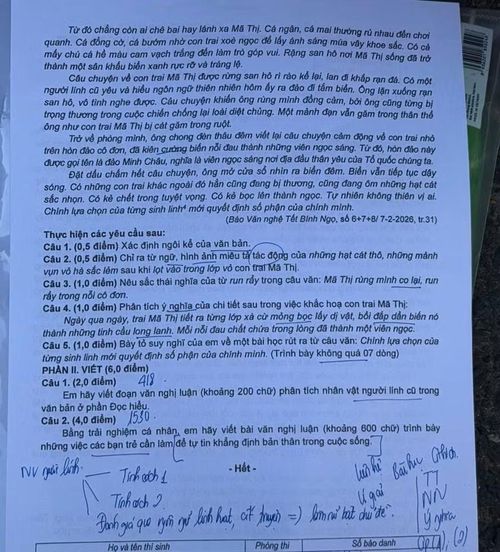 Từ đó chẳng còn ai chê bai hay lánh xa Mã Thị. Cá ngân, cá mai thường rủ nhau đến chơi
quanh. Cá đồng cờ, cá bướm nhờ con trai xoè ngọc để lấy ánh sáng múa vây khoe sắc. Có cả
mấy chú cá hề màu cam vạch trắng đến làm trò góp vui. Rặng san hô nơi Mã Thị sống đã trở
thành một sân khấu biển xanh rực rỡ và tráng lệ.
Câu chuyện về con trai Mã Thị được rừng san hô rì rào kể lại, lan đi khắp rạn đá. Có một
người lính cũ yêu và hiểu ngôn ngữ thiên nhiên hôm ấy ra đảo đi tắm biển. Ông lặn xuống rạn
san hô, vô tình nghe được. Câu chuyện khiến ông rùng mình đồng cảm, bởi ông cũng từng bị
trọng thương trong cuộc chiến chống lại loài diệt chủng. Một mảnh đạn vẫn găm trong thân thể
ông như con trai Mã Thị bị cát găm trong ruột.
Trở về phòng mình, ông chong đèn thâu đêm viết lại câu chuyện cảm động về con trai nhỏ
trên hòn đảo cô đơn, đã kiên cường biến nỗi đau thành những viên ngọc sáng. Từ đó, hòn đảo này
được gọi tên là đảo Minh Châu, nghĩa là viên ngọc sáng nơi địa đầu thân yêu của Tổ quốc chúng ta.
Đặt dấu chấm hết câu chuyện, ông mở cửa sổ nhìn ra biển đêm. Biển vẫn tiếp tục dậy
sóng. Có những con trai khác ngoài đó hẳn cũng đang bị thương, cũng đang ôm những hạt cát
sắc nhọn. Có kẻ chết trong tuyệt vọng. Có kẻ bọc lên thành ngọc. Tự nhiên không thiên vị ai.
Chính lựa chọn của từng sinh linh⁴ mới quyết định số phận của chính mình.
(Báo Văn nghệ Tết Bính Ngọ, số 6+7+8/ 7-2-2026, tr.31)
Thực hiện các yêu cầu sau:
Câu 1. (0,5 điểm) Xác định ngôi kể của văn bản.
Câu 2. (0,5 điểm) Chỉ ra từ ngữ, hình ảnh miêu tả tác động của những hạt cát thô, những mảnh
vụn vỏ hà sắc lẻm sau khi lọt vào trong lớp vỏ con trai Mã Thị.
Câu 3. (1,0 điểm) Nêu sắc thái nghĩa của từ run rẩy trong câu văn: Mã Thị rùng mình co lại, run
rẩy trong nỗi cô đơn.
Câu 4. (1,0 điểm) Phân tích ý nghĩa của chi tiết sau trong việc khắc hoạ con trai Mã Thị:
Ngày qua ngày, trai Mã Thị tiết ra từng lớp xà cừ mỏng bọc lấy dị vật, bồi đắp dần biến nó
thành những tinh cầu long lanh. Mỗi nỗi đau chất chứa trong lòng đã thành một viên ngọc.
Câu 5. (1,0 điểm) Bày tỏ suy nghĩ của em về một bài học rút ra từ câu văn: Chính lựa chọn của
từng sinh linh mới quyết định số phận của chính mình. (Trình bày không quá 07 dòng)
PHẦN II. VIẾT (6,0 điểm)
Câu 1. (2,0 điểm) 418
Em hãy viết đoạn văn nghị luận (khoảng 200 chữ) phân tích nhân vật người lính cũ trong
văn bản ở phần Đọc hiểu.
Câu 2. (4,0 điểm) 1530
Bằng trải nghiệm cá nhân, em hãy viết bài văn nghị luận (khoảng 600 chữ) trình bày
những việc các bạn trẻ cần làm để tự tin khẳng định bản thân trong cuộc sống.
- Hết -
NV người lính
Tính cách 1
Tính cách 2
Đánh giá qua ngôn ngữ linh hoạt, cốt truyện => làm nổi bật chủ đề
TT
NN
Ý nghĩa
Họ và tên thí sinh
Phòng thi
Số báo danh